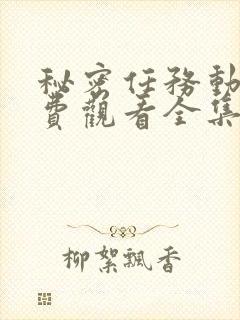 秘密任務動
費觀看全集
柳絮飄香